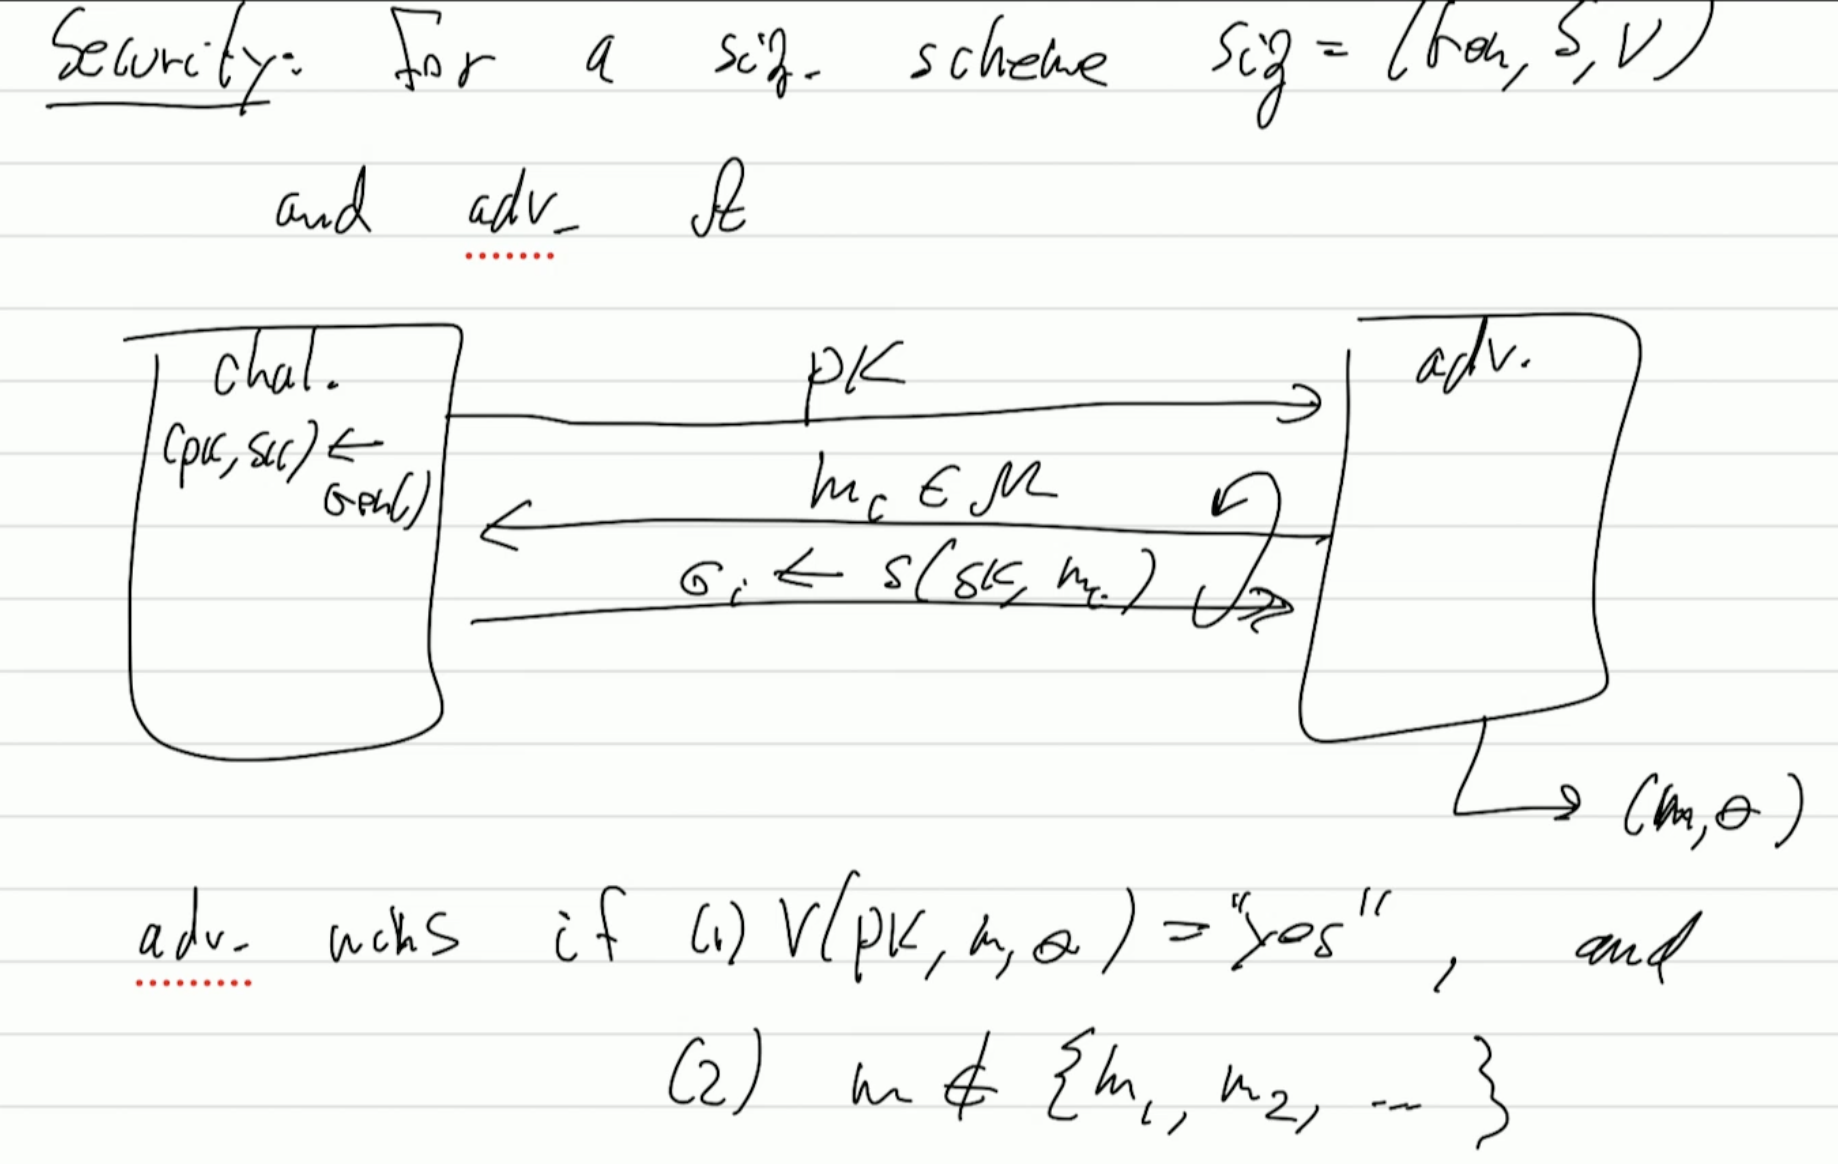 Security: For a sig. scheme Sig = (Gen, S, V)
and adv. A
chal.
adv.
pk
(pk, sk) ←
Gen()
mᵢ ∈ M
σᵢ ← S(sk, mᵢ)
(m, σ)
adv. wins if (1) V(pk, m, σ) = "yes", and
(2) m ∉ {m₁, m₂, ...}